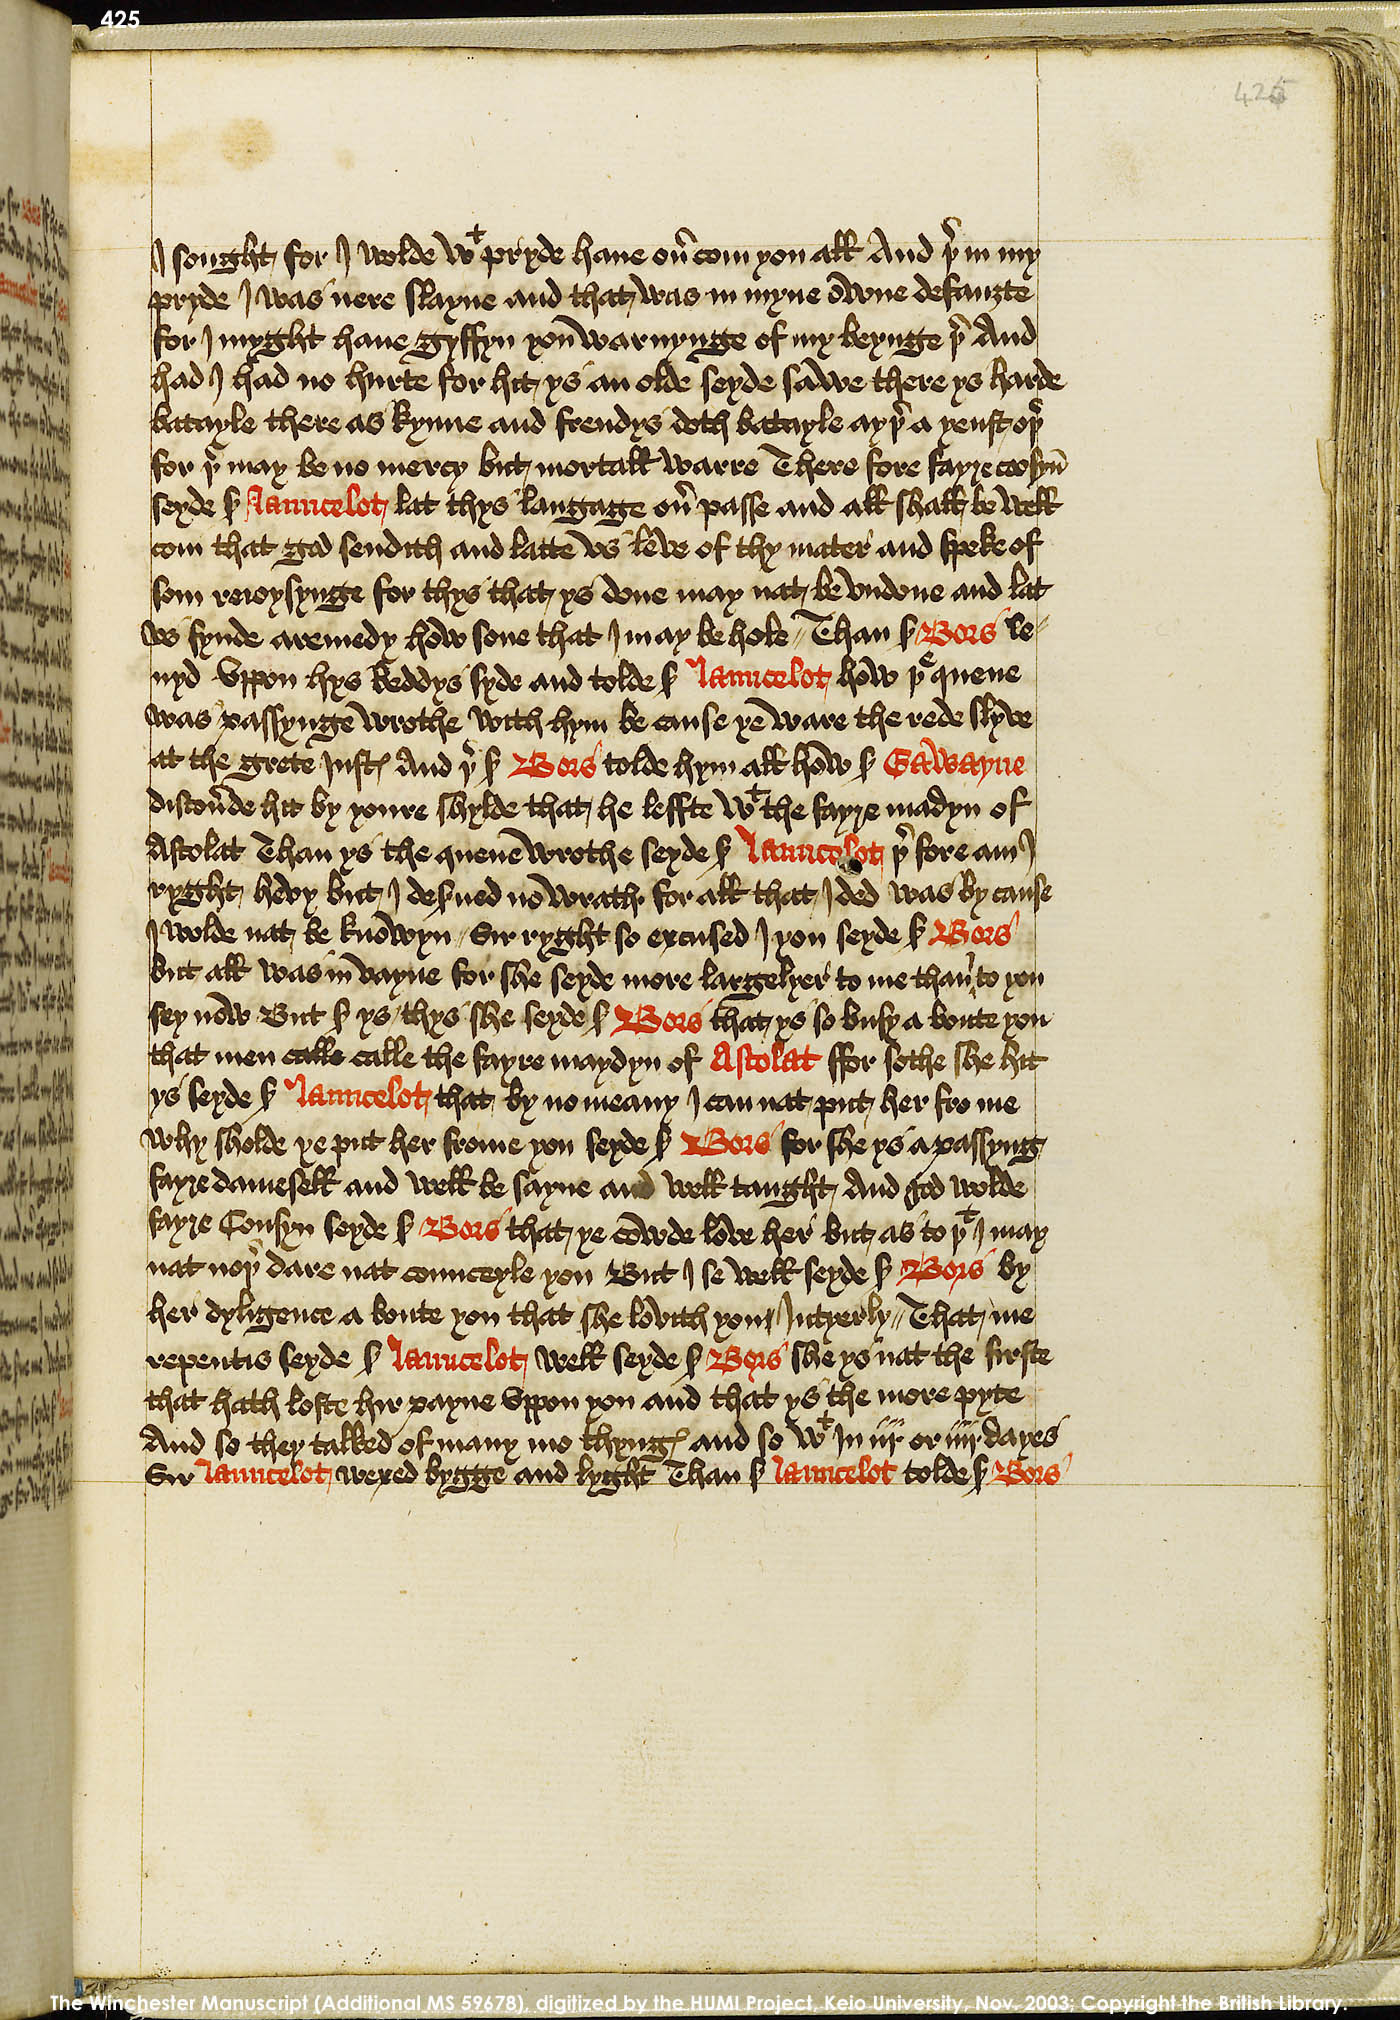 425
425
I sought for I wolde wᵗ pryde haue ou̅com you all And þ̅ in my
pryde I was nere slayne and that was in myne owne defaugte
for I myght haue gyffyn you warnynge of my beynge þ̅ And
had I had no hurte for hit ys an olde seyde sawe there ys harde
batayle there as kynne and frendys doth batayle ayþ̅ a yenst oþ̅
for þ̅ may be no mercy but mortall warre There fore fayre cosyn̅
seyde S Launcelot lat thys langage ou̅ passe and all shall be well
com that god sendith and latte vs leve of thy mater and speke of
som reioysynge for thys that ys done may nat be vndone and lat
vs fynde a remedy how sone that I may be hole // Than S Bors le-
nyd vppon hys beddys syde and tolde S Launcelot how þᵉ quene
was passynge wrothe with hym be cause ye ware the rede slyve
at the grete Justꝭ And þ̅ S Bors tolde hym all how S Gawayne
discou̅de hit by youre shylde that he leffte wᵗ the fayre madyn of
Astolat Than ys the quene wrothe seyde S Launcelot þ̅ fore am I
ryght hevy but I des̅ued no wrath for all that I ded was by cause
I wolde nat be knowyn // Sir ryght so excused I you seyde S Bors
but all was in vayne for she seyde more largelyer to me than̅ to you
sey now But S ys thys she seyde S Bors that ys so busy a boute you
that men calle calle the fayre maydyn of Astolat ffor sothe she hit
ys seyde S Launcelot that by no meany I can nat put her fro me
why sholde ye put her frome you seyde S Bors for she ys a passyng
fayre damesell and well be sayne and well taught And god wolde
fayre Cousyn seyde S Bors that ye cowde love her but as to þᵗ I may
nat noþ̅ dare nat counceyle you But I se well seyde S Bors by
her dyligence a boute you that she lovith you Intyerly // That me
repentis seyde S Launcelot well seyde S Bors she ys nat the firste
that hath loste hir payne vppon you and that ys the more pyte
And so they talked of many mo thyngꝭ and so wᵗ In iij or iiij dayes
Sir Launcelot wexed bygge and lyght Than S Launcelot tolde S Bors
The Winchester Manuscript (Additional MS 59678), digitized by the HUMI Project, Keio University, Nov. 2003; Copyright the British Library.